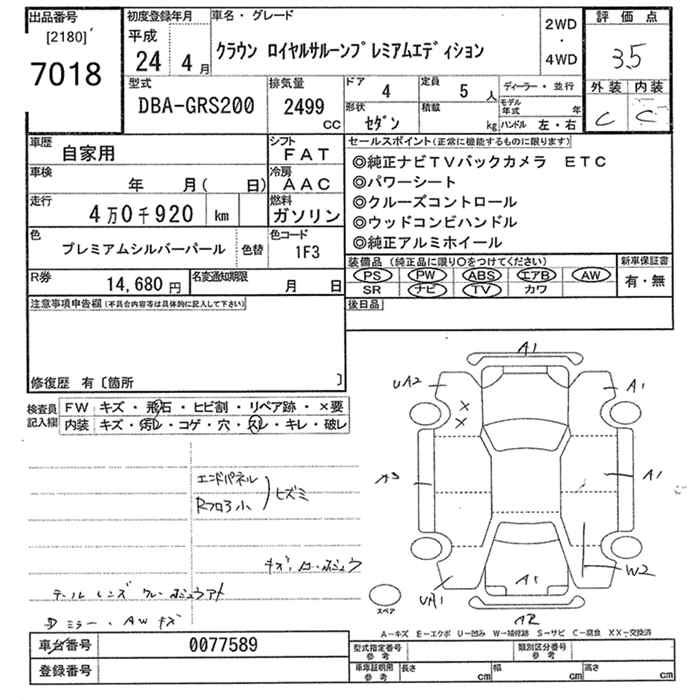 出品番号
[2180]
7018
初度登録年月
平成
24年 4月
車名・グレード
クラウン ロイヤルサルーンプレミアムエディション
2WD
・
4WD
評価点
3.5
外装 内装
C C
型式
DBA-GRS200
排気量
2499
CC
ドア 4
定員 5人
形状 セダン
積載 kg
ディーラー・並行
モデル年式 年
ハンドル 左・右
車歴 自家用
シフト FAT
車検 年 月( 日)
冷房 AAC
走行 4万0千920 km
燃料 ガソリン
色 プレミアムシルバーパール
色替
色コード 1F3
R券 14,680円
名変通知期限 月 日
セールスポイント(正常に機能するものに限ります)
◎純正ナビTVバックカメラ ETC
◎パワーシート
◎クルーズコントロール
◎ウッドコンビハンドル
◎純正アルミホイール
装備品(純正品に限り○をつけてください)
PS PW ABS エアB AW
SR ナビ TV カワ
新車保証書
有・無
後日品
注意事項申告欄(不具合内容等は具体的に記入して下さい)
修復歴 有〔箇所 〕
検査員記入欄
FW キズ・飛石・ヒビ割・リペア跡・×要
内装 キズ・汚レ・コゲ・穴・スレ・キレ・破レ
エンドパネル
Rフロア小
ヒズミ
テールレンズ
ミラー・AWキズ
A1
UA2
A1
A3
A1
UA1
A1
W2
A2
スペア
A-キズ E-エクボ U-凹み W-補修跡 S-サビ C-腐食 XX-交換済
車台番号 0077589
登録番号
型式指定番号 参考
類別区分番号 参考
車庫証明用 参考 長さ cm 幅 cm 高さ cm